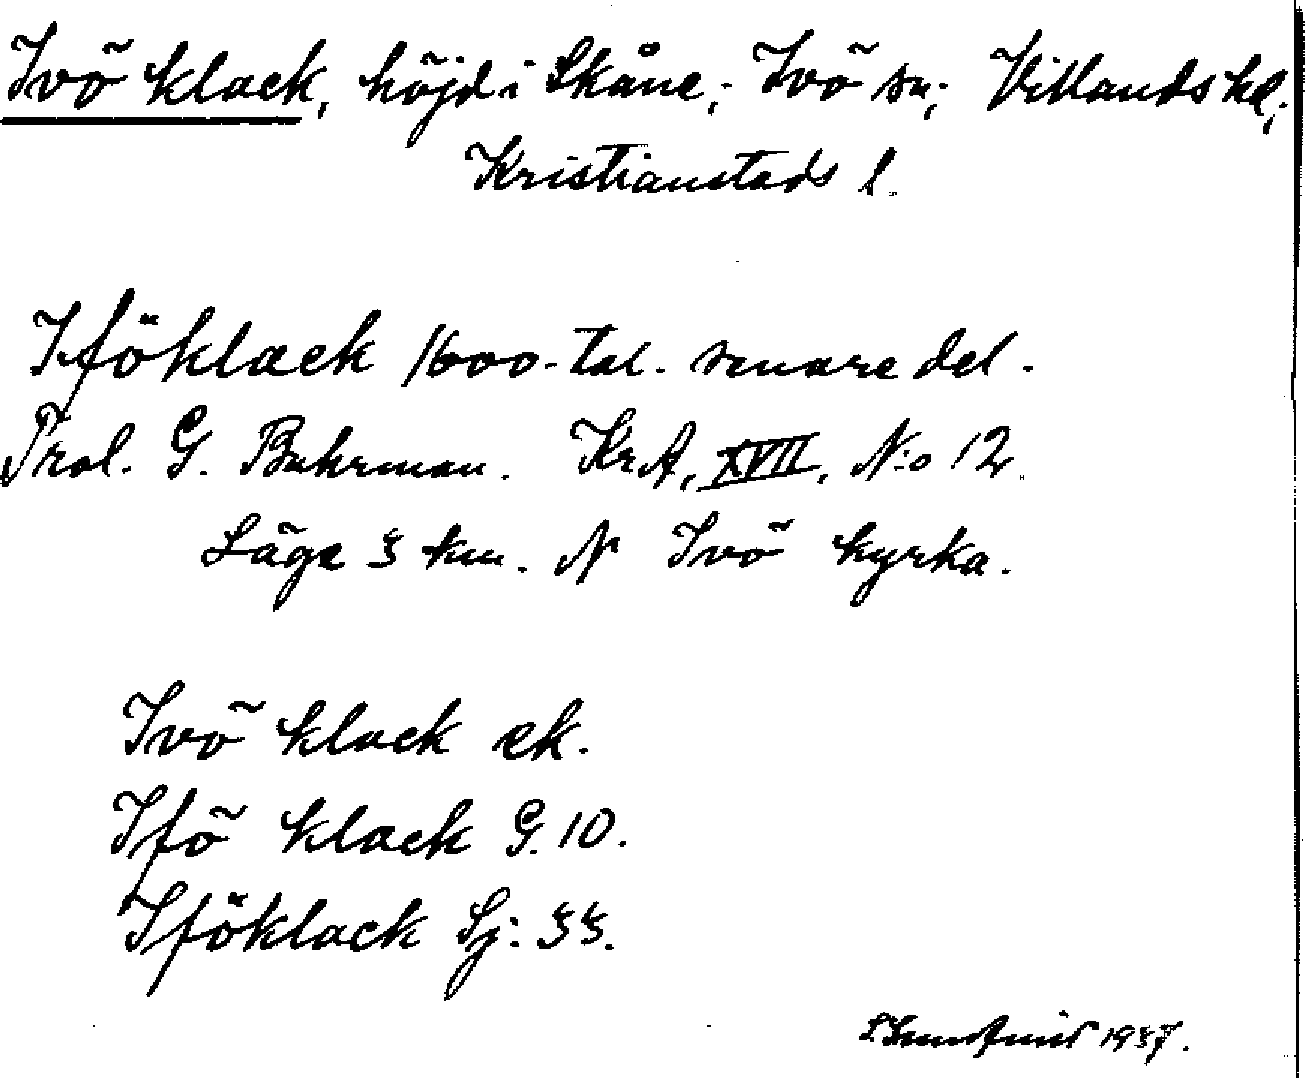 Ivö klack, höjd i Skåne; Ivö sn; Villands hd;
Kristianstads l.
Iföklack 1600-tal. senare del.
Prol. G. Buhrman. KrA, XVII, N:o 12.
Läge 3 km. N Ivö kyrka.
Ivö klack ek.
Ifö klack G. 10.
Iföklack Sj: 33.
1937.